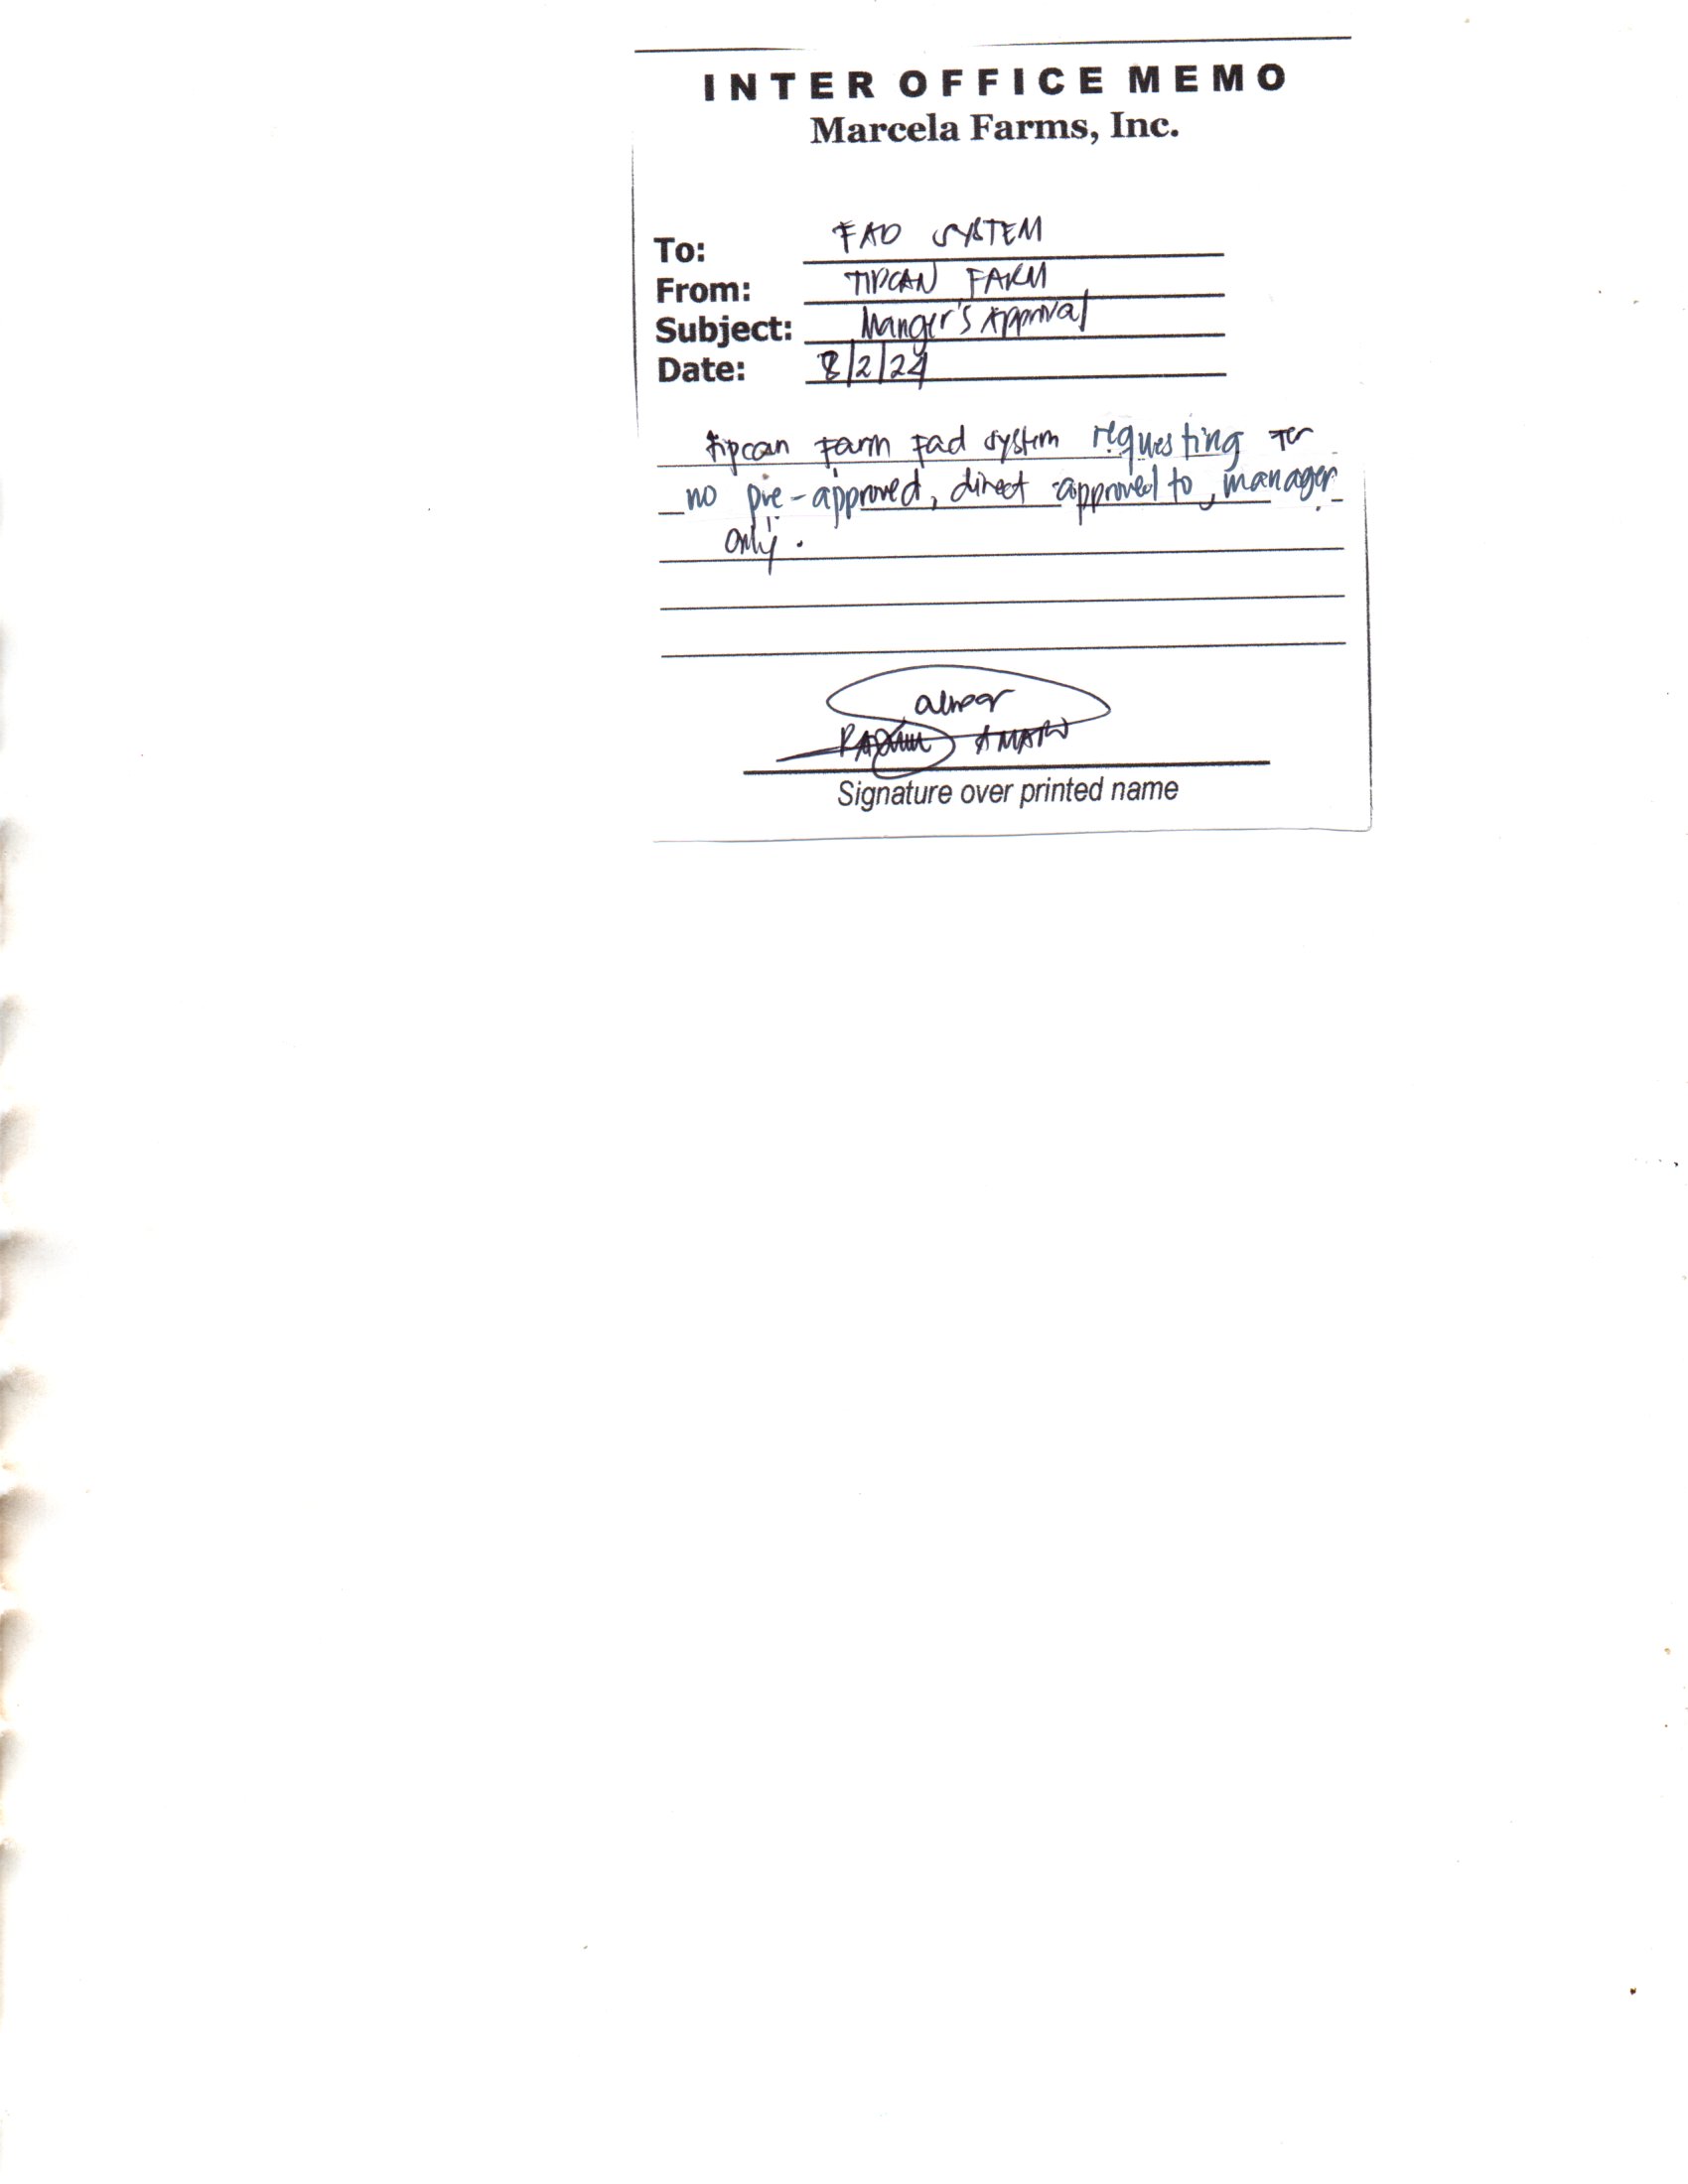 INTER OFFICE MEMO
Marcela Farms, Inc.
To: FAD SYSTEM
From: TIPCAN FARM
Subject: Manger's Approval
Date: 8/2/24
tipcan Farm Fad system requesting for
no pre-approved, direct approved to, manager
only.
Signature over printed name